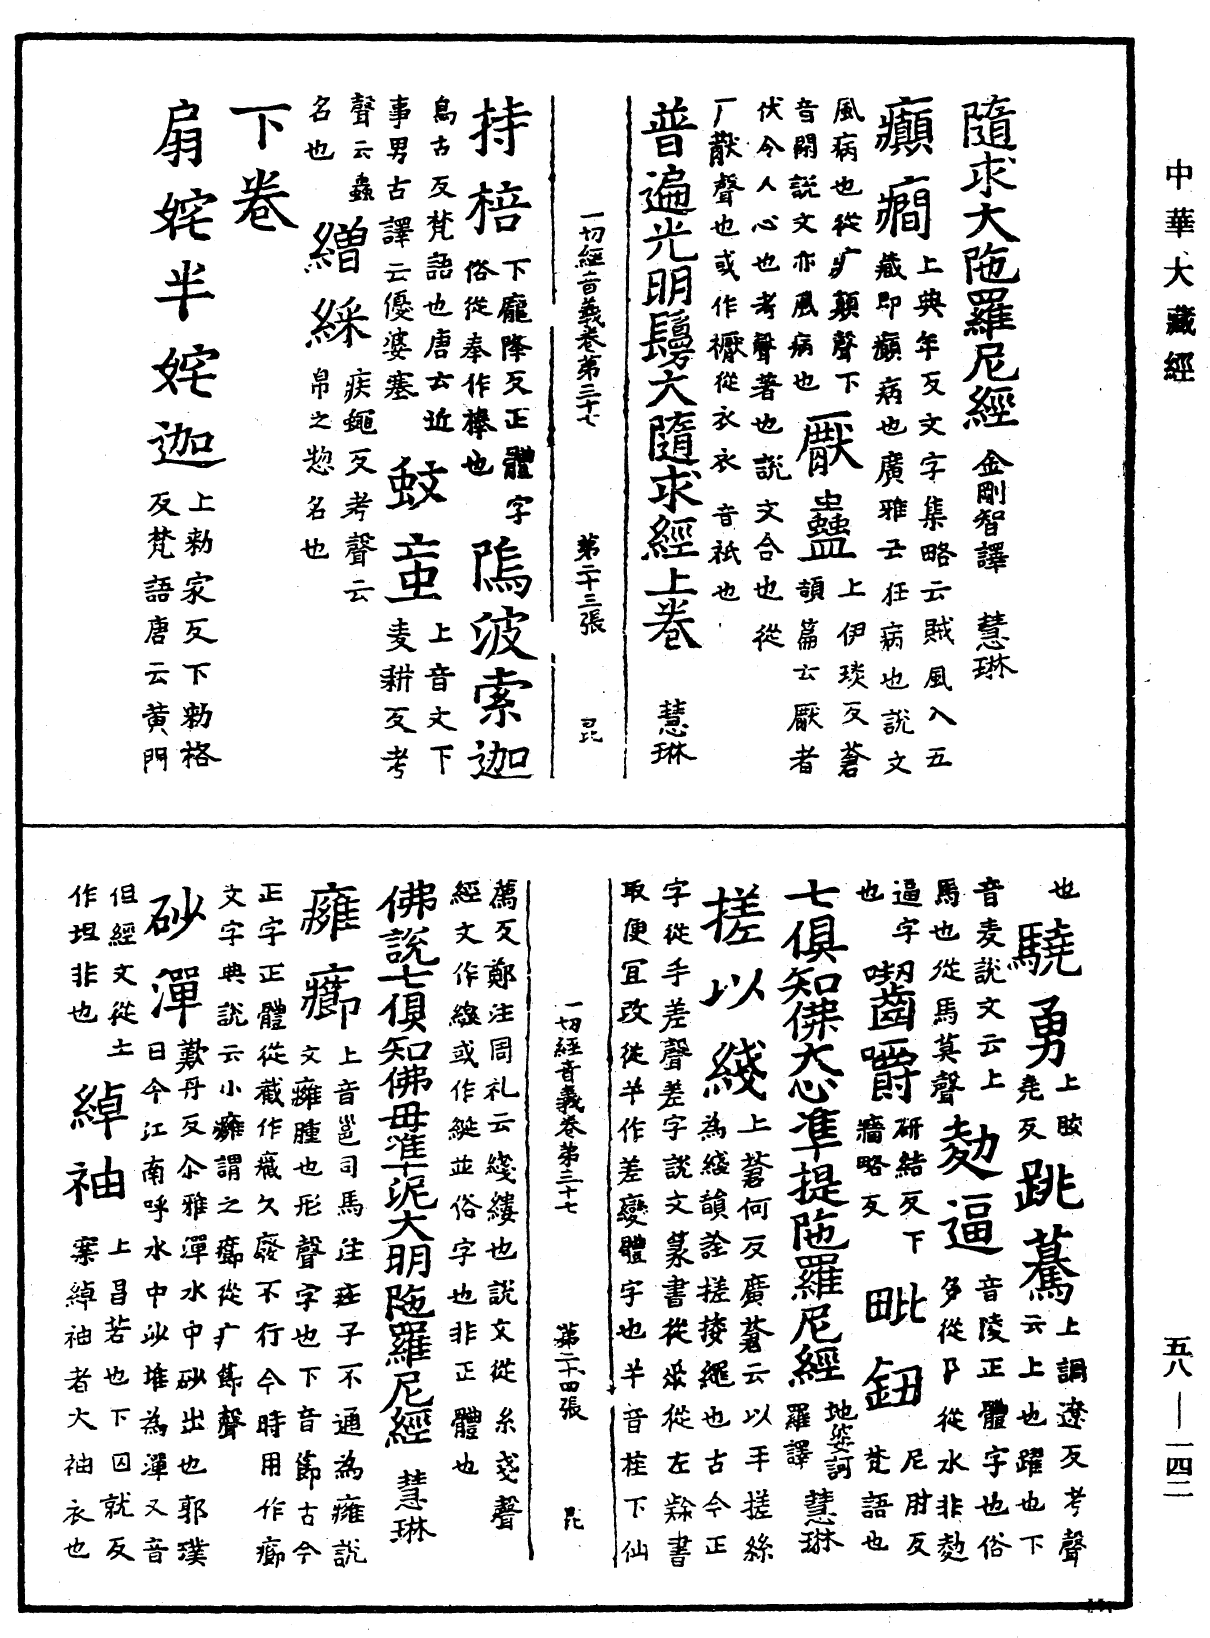 中華大藏經
隨求大陁羅尼經 金剛智譯 慧琳
癲癇 上典年反文字集略云賊風入五
藏即癲病也廣雅云狂病也說文
風病也從疒顛聲下
音閑說文亦風病也 厭蠱 上伊琰反蒼
頡篇云厭者
伏令人心也考聲著也說文合也從
厂猒聲也或作懕從衣衣音祇也
普遍光明鬘大隨求經上卷 慧琳
一切經音義卷第三十七 第二十三張 昆
持棓 下龐降反正體字
俗從奉作棒也 隖波索迦
烏古反梵語也唐云近
事男古譯云優婆塞 蚊䖟 上音文下
麦耕反考
聲云蟲
名也 繒綵 疾蠅反考聲云
帛之惣名也
下卷
扇姹半姹迦 上勑家反下勑格
反梵語唐云黃門
也 驍勇 上晈
堯反 跳驀 上調遼反考聲
云上也躍也下
音麦說文云上
馬也從馬莫聲 勀逼 音陵正體字也俗
多從阝從水非勀
逼字
也 喫齒嚼 研結反下
牆略反 毗鈕 尼肘反
梵語也
七俱知佛大心准提陁羅尼經 地婆訶
羅譯 慧琳
搓以綫 上蒼何反廣蒼云以手搓絲
為綫韻詮搓捼繩也古今正
字從手差聲差字說文篆書從𠂹從左隸書
取便宜改從羊作差變體字也羊音桂下仙
一切經音義卷第三十七 第二十四張 昆
薦反鄭注周礼云綫縷也說文從糸戔聲
經文作線或作綖並俗字也非正體也
佛說七俱知佛母准泥大明陁羅尼經 慧琳
癰癤 上音邕司馬注莊子不通為癰說
文癰腫也形聲字也下音節古今
正字正體從截作㘜久廢不行今時用作癤
文字典說云小癰謂之癤從疒節聲
砂潬 歎丹反尒雅潬水中砂出也郭璞
曰今江南呼水中沙堆為潬又音
但經文從土
作坦非也 綽袖 上昌若也下囚就反
案綽袖者大袖衣也
五八—一四二